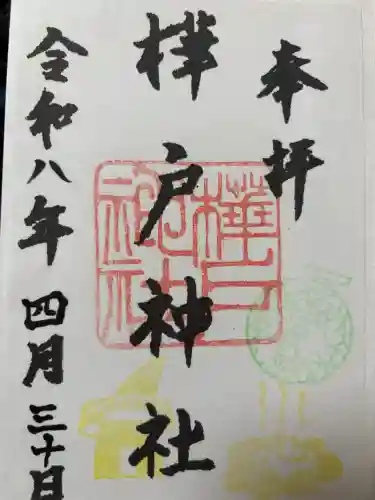 奉拝
樺戸神社
令和八年四月三十日
樺戸
神社